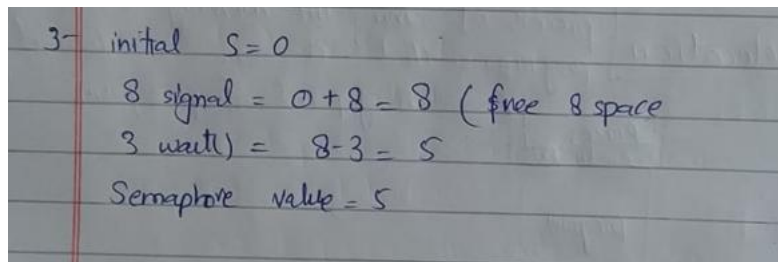 3- initial S=0
8 signal = 0+8 = 8 ( free 8 space
3 wait() = 8-3 = 5
Semaphore value = 5